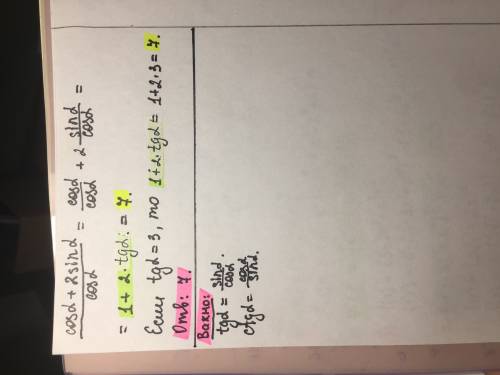 cosα + 2sinα / cosα = cosα / cosα + 2 sinα / cosα =
= 1 + 2 · tgα: = 7.
Если tgα = 3, то 1 + 2 · tgα = 1 + 2 · 3 = 7.
Отв: 7.
Важно:
tgα = sinα / cosα.
ctgα = cosα / sinα.